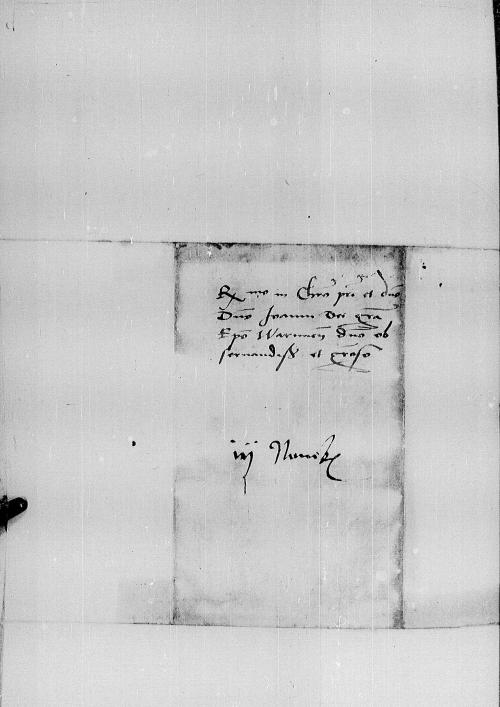 R mo in Chro pri et dno
Dno Joanni Dei gra
Epo Warmien dno ob
seruandiss et groso
iij Novẽb